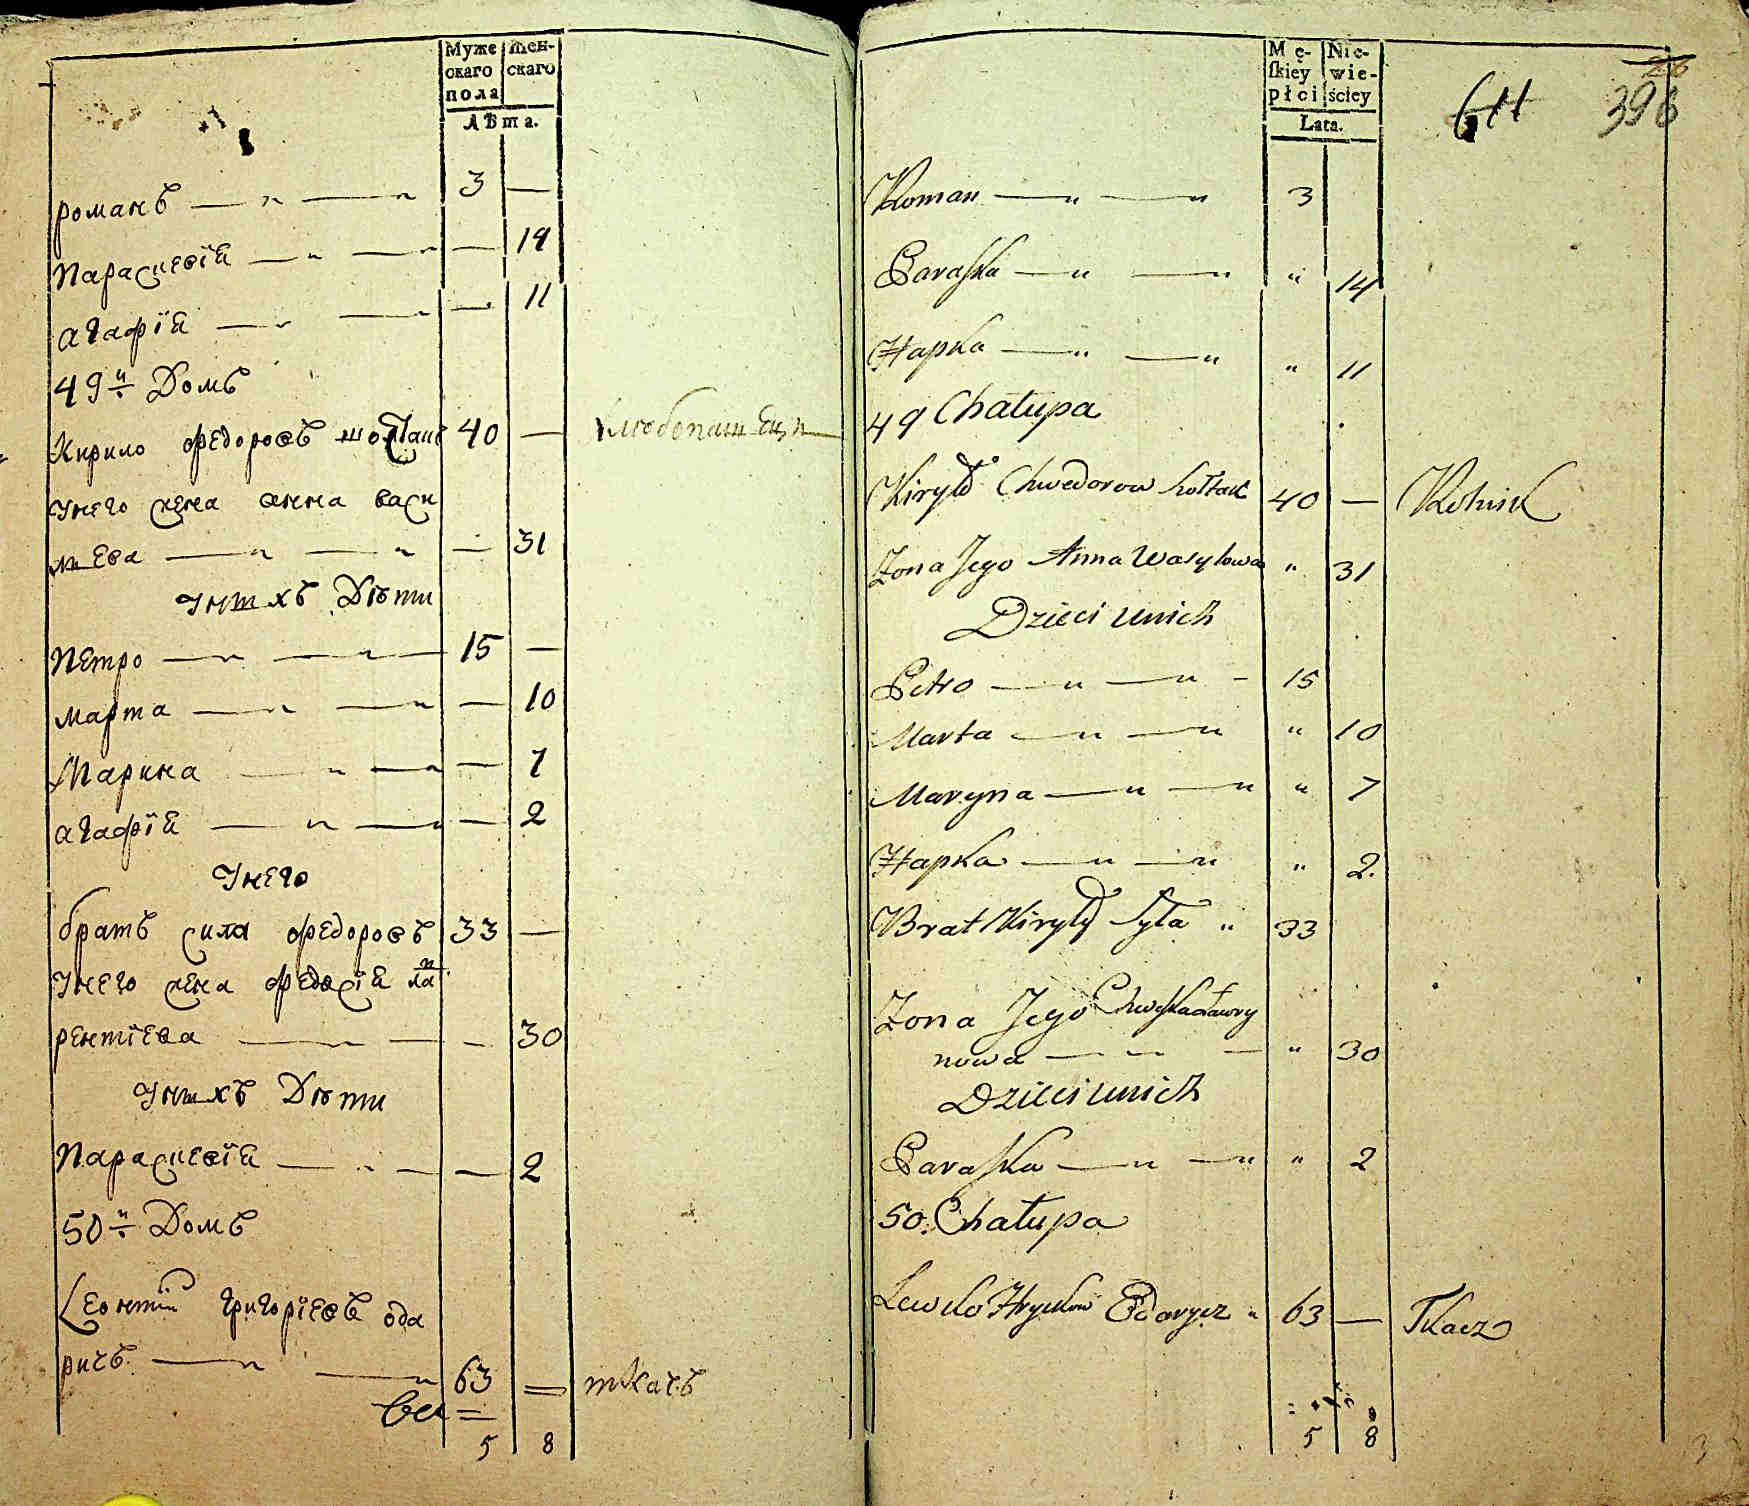 Муже
скаго
пола
Жен-
скаго
Лѣта.
романъ 3 —
параскевіа — 14
агафіа — 11
49й Домъ
Кирило федоровъ шолтакъ 40 — хлебопашецъ
Унего жена анна васи
лиева — 31
Унихъ Дѣти
петро 15 —
марта — 10
Марина — 7
агафіа — 2
Унего
братъ сила федоровъ 33 —
Унего жена федосіа ла
рентіева — 30
Унихъ Дѣти
параскевіа — 2
50й Домъ
Леонтій григоріевъ ода
ричъ 63 = ткачъ
5 8
Mę-
skiey
płci
Nie-
wie-
ściey
Lata.
611
26
396
Roman — " — " 3
Paraska — " — " " 14
Hapka — " — " " 11
49 Chałupa
Kiryło Chwedorow Szołtak 40 — Rolnik
Zona Jego Anna Wasylowa " 31
Dzieci unich
Petro — " — " - 15
Marta — " — " " 10
Maryna — " — " " 7
Hapka — " — " " 2.
Brat Kiryły Syła " 33
Zona Jego Chweska Ławry
nowa — " — " 30
Dzieci unich
Paraska — " — " " 2
50. Chałupa
Lewko Hryckow Odarycz " 63 — Tkacz
5 8